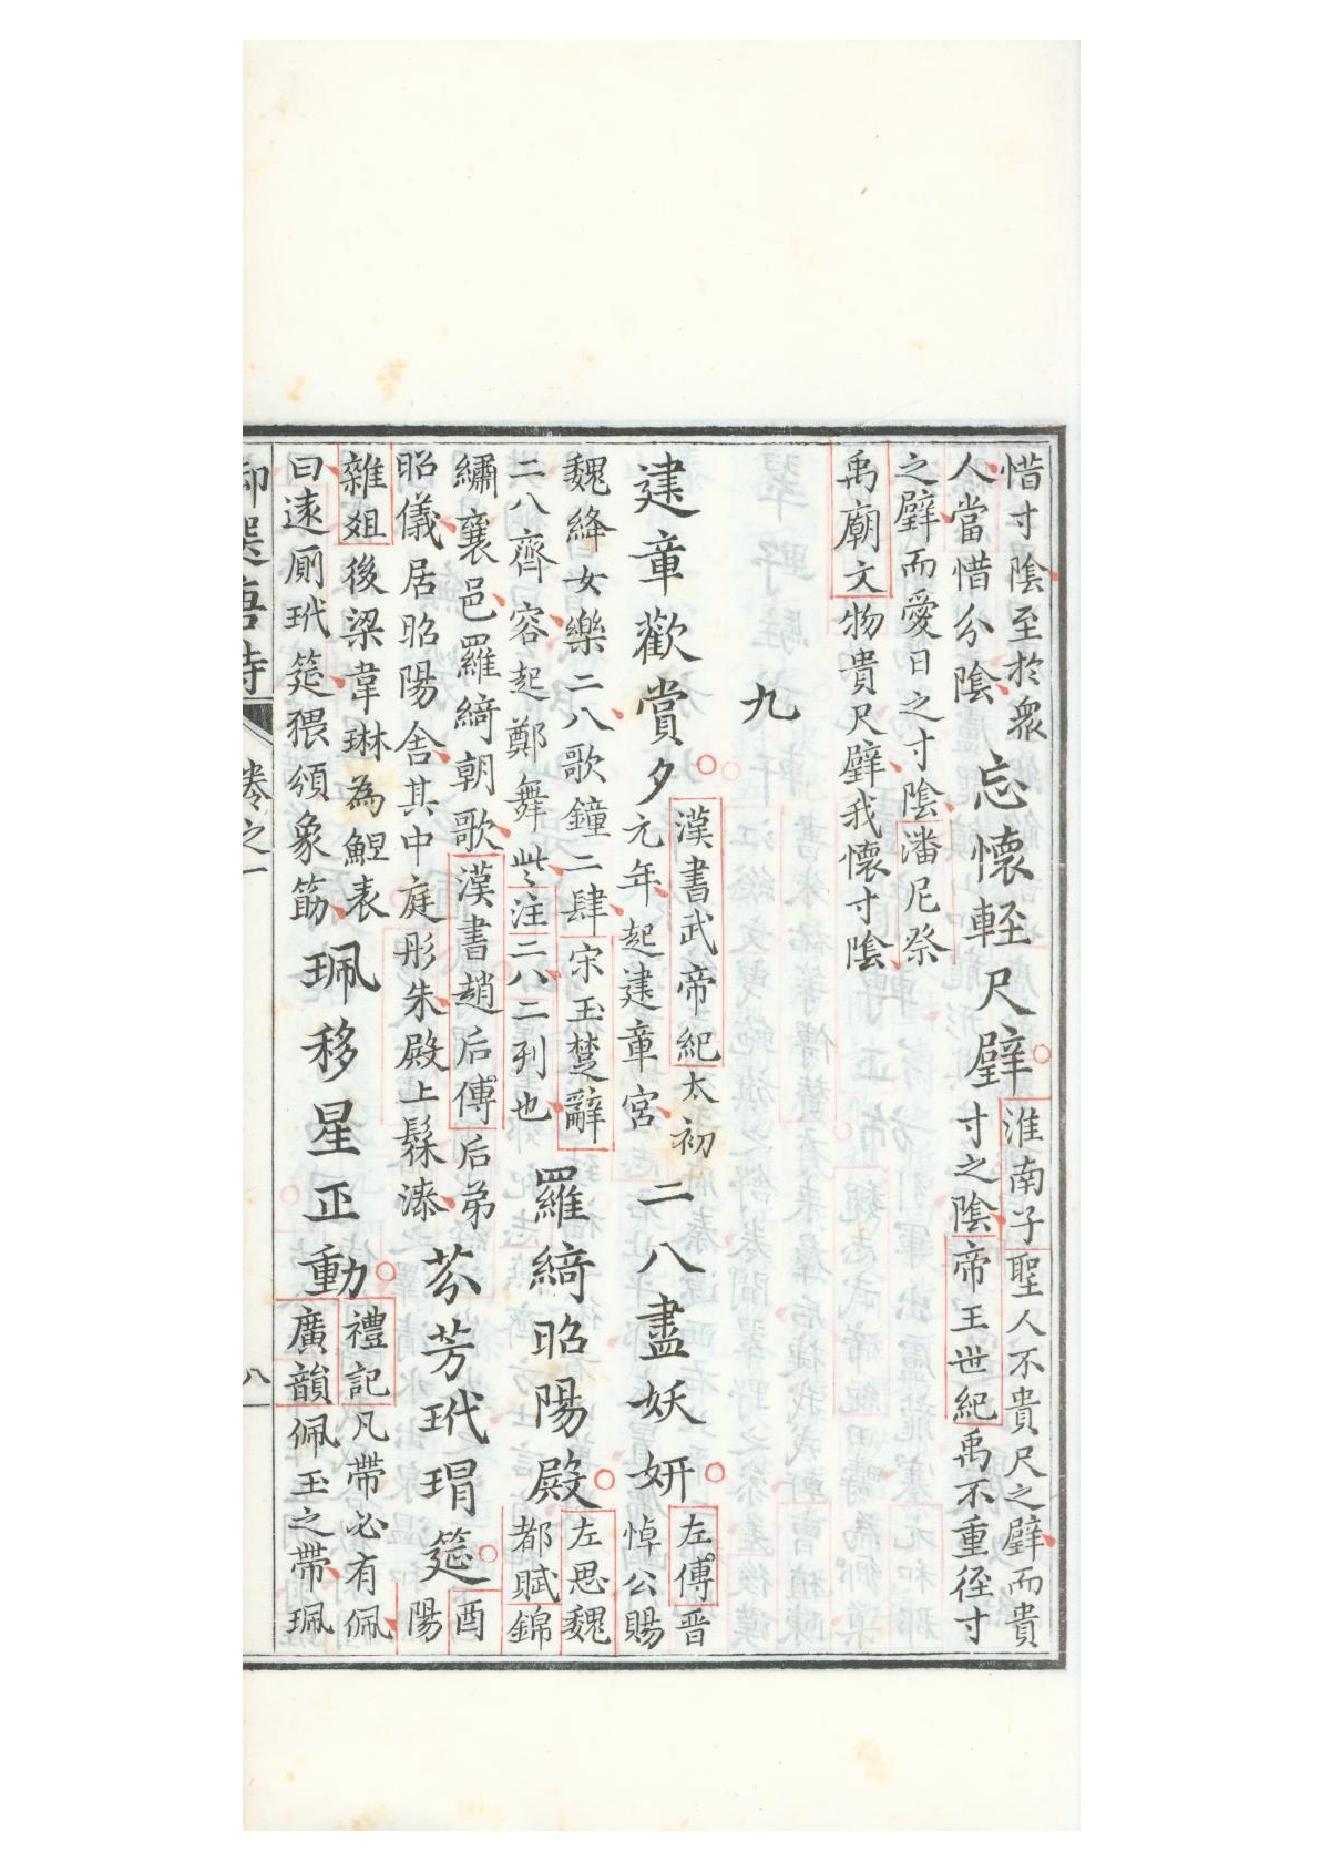 惜寸陰至於衆
人當惜分陰
忘懷輕尺璧
淮南子聖人不貴尺之璧而貴
寸之陰帝王世紀禹不重徑寸
之璧而愛日之寸陰潘尼祭
禹廟文物貴尺璧我懷寸陰
九
建章歡賞夕
漢書武帝紀太初
元年起建章宮
二八盡妖妍
左傅晉
悼公賜
魏絳女樂二八歌鐘二肆宋玉楚辭
二八齊容起鄭舞些注二八二列也
羅綺昭陽殿
左思魏
都賦錦
繡襄邑羅綺朝歌漢書趙后傅后弟
昭儀居昭陽舍其中庭彤朱殿上髹漆
芬芳玳瑁筵
酉
陽
雜俎後梁韋琳為䱇表
曰遂厠玳筵猥頒象筯
珮移星正動
禮記凡帶必有佩
廣韻佩玉之帶珮
卷之一
八